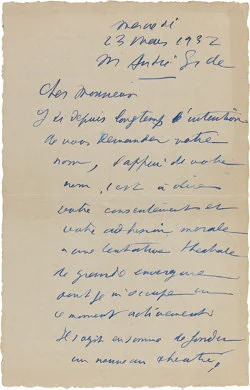 mercredi
23 mars 1932
M André Gide
Cher monsieur
J'ai depuis longtemps l'intention
de vous demander votre
nom, l'appui de votre
nom, c'est à dire
votre consentement et
votre adhésion morale
a une tentative theatrale
de grande envergure
dont je m'occupe en
ce moment activement
Il s'agit en somme de fonder
un nouveau theatre,